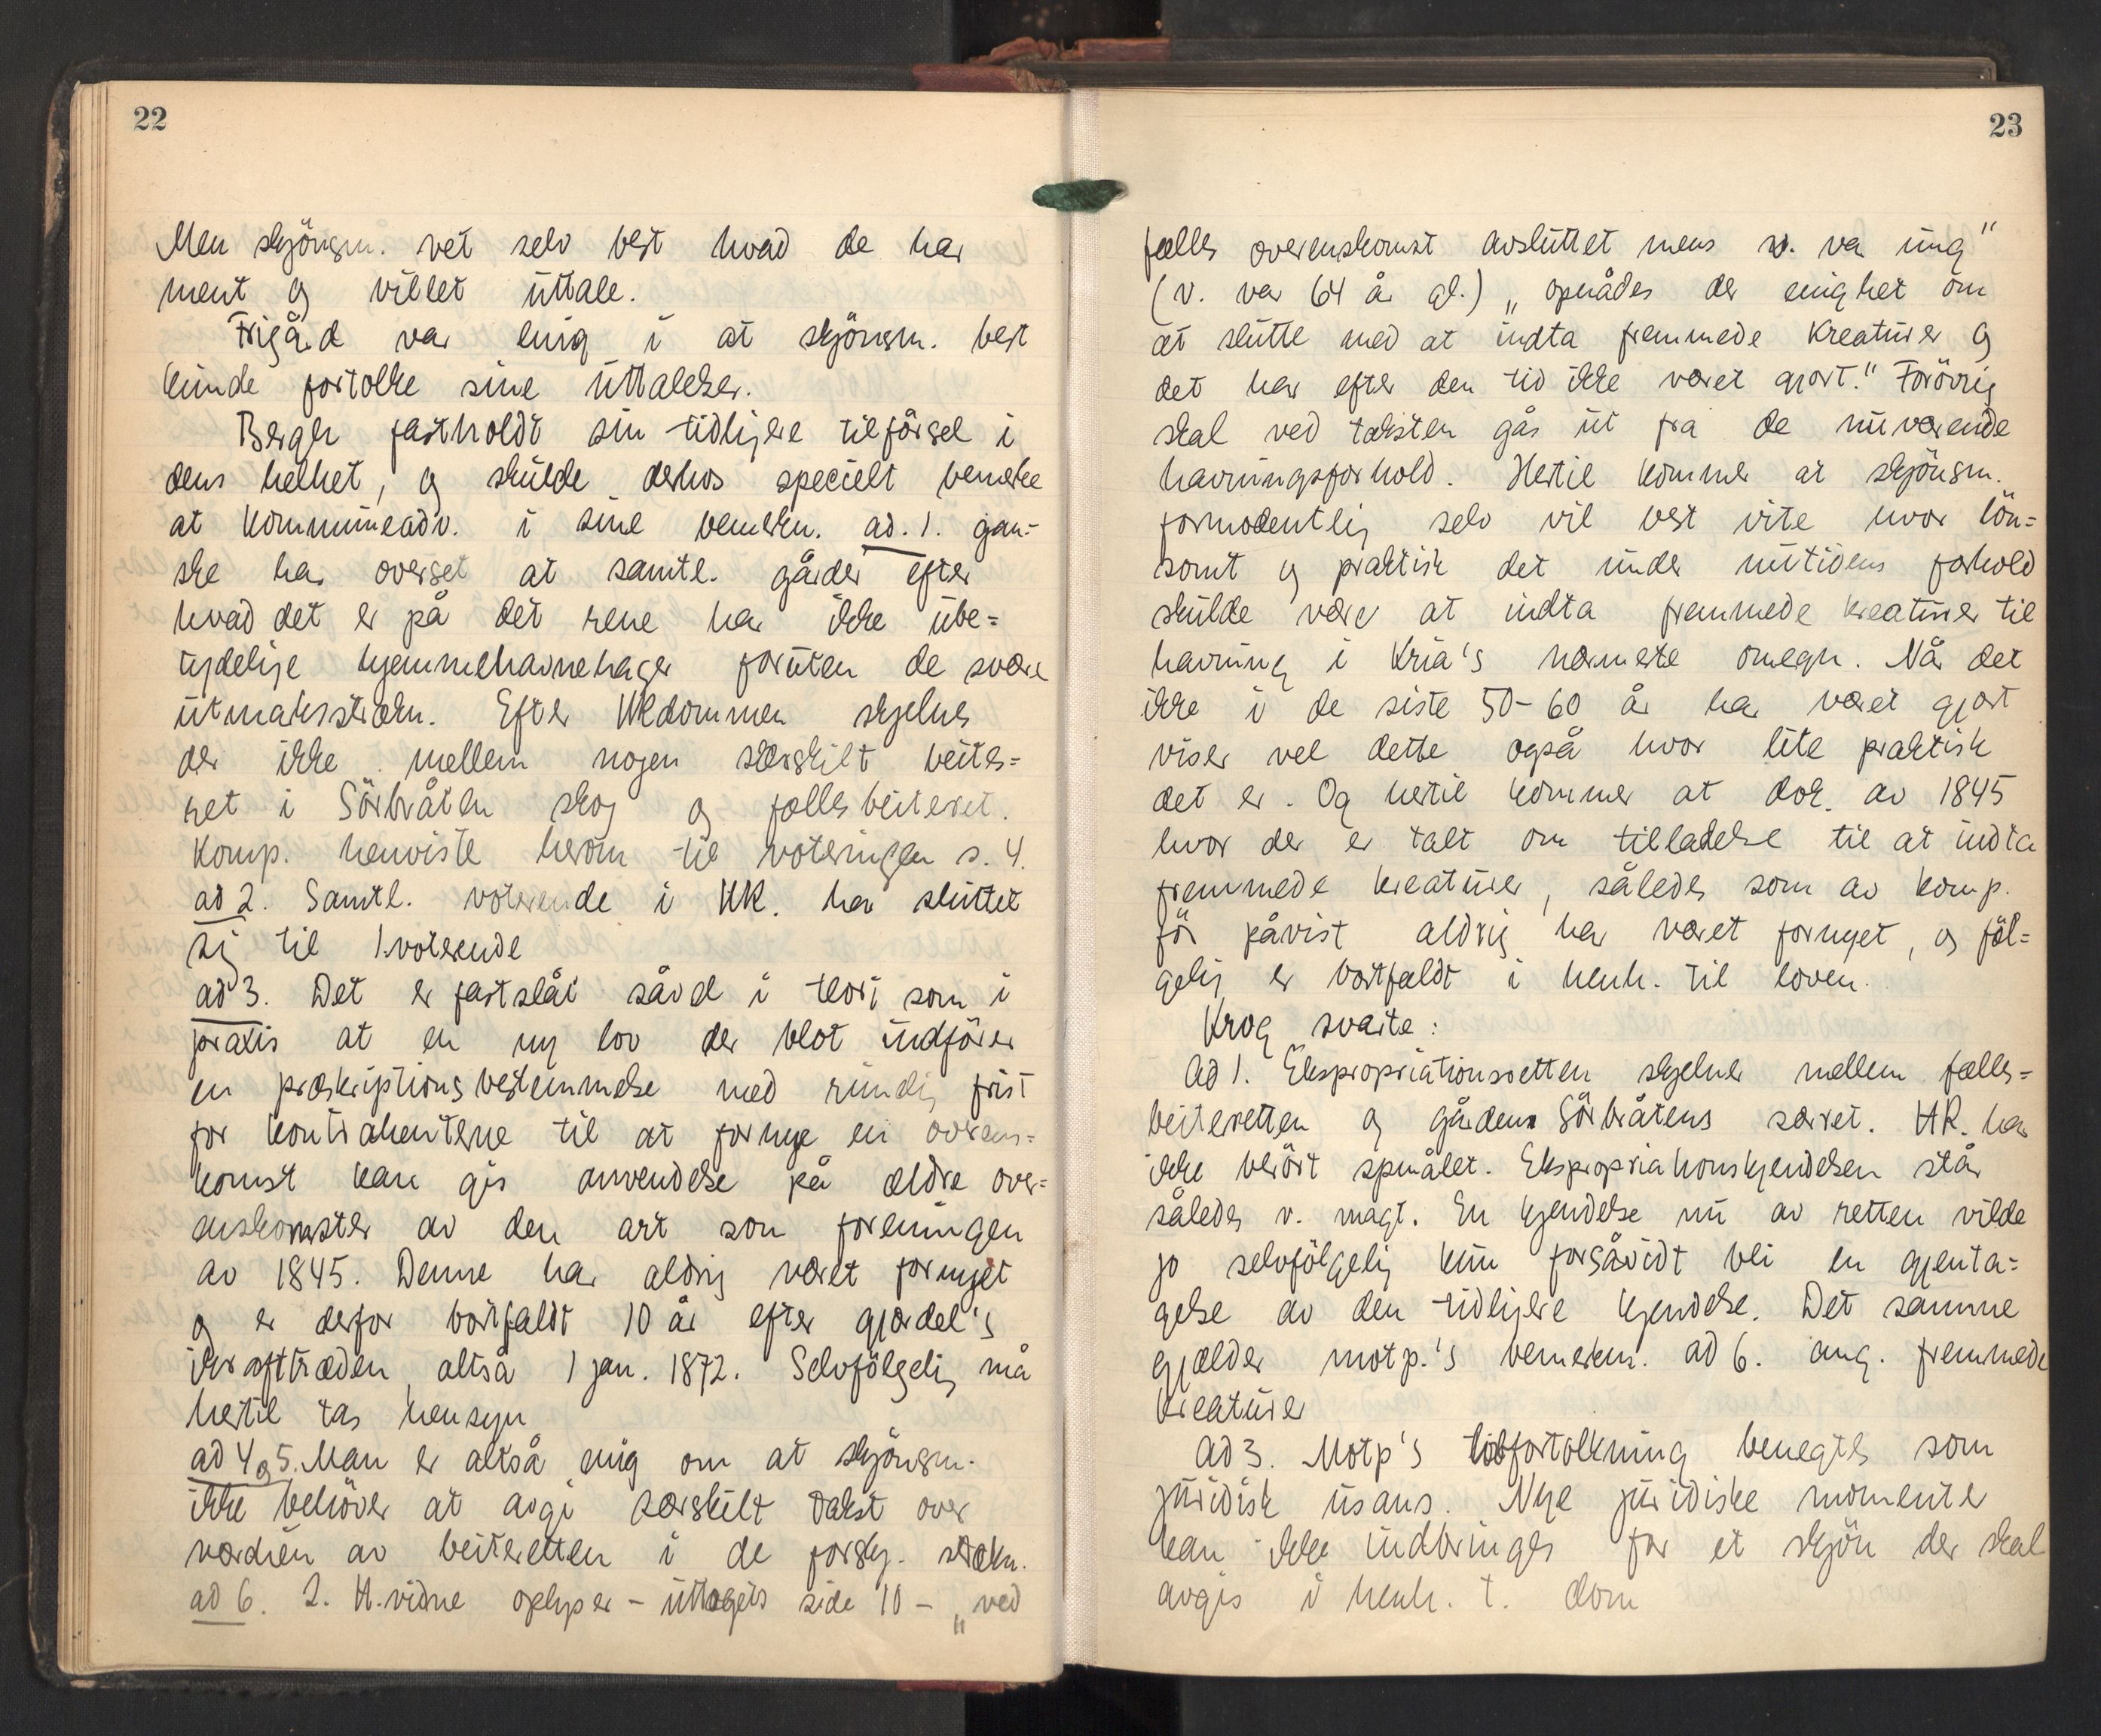 22
Men skjönsm. vet selv best hvad de har
ment og villet uttale.
Frigård var enig i at skjönsm. best
kunde fortolke sine uttalelser.
Bergh fastholdt sin tidligere tilförsel i
dens helhet, og skulde derhos specielt bemerke
at kommuneadv. i sine bemerkn. ad. 1. gan=
ske har overset at samtl. gårder efter
hvad det er på det rene har ikke ube=
tydelige hjemmehavnehager foruten de svære
utmarksstrækn. Efter HRdommen skjelnes
der ikke mellem nogen særskilt beites=
ret i Sörbråten skog og fællesbeiteret.
Komp. henviste herom til voteringen s. 4.
ad 2. Samtl. voterende i HR. har sluttet
sig til 1.voterende
ad 3. Det er fastslåt såvel i teori som i
praxis at en ny lov der blot indförer
en præskriptionsbestemmelse med rundig frist
for kontrahenterne til at fornye en overens=
komst kan gis anvendelse på ældre over=
enskomster av den art som foreningen
av 1845. Denne har aldrig været fornyet
og er derfor bortfaldt 10 år efter gjærdel's
ikrafttræden, altså 1 jan. 1872. Selvfölgelig må
hertil tas hensyn
ad 4 og 5. Man er altså enig om at skjönsm.
ikke behöver at avgi særskilt takst over
værdien av beiteretten i de forskj. strækn.
ad 6. 2. H.vidne oplyser - uttogets side 10 - „ved
23
fælles overenskomst avsluttet mens v. var ung"
(v. var 64 år gl.) „opnådes der enighet om
at slutte med at indta fremmede kreaturer og
det har efter den tid ikke været gjort." Forövrig
skal ved taksten gås ut fra de nuværende
havningsforhold. Hertil kommer at skjönsm.
formodentlig selv vil best vite hvor lön=
somt og praktisk det under nutidens forhold
skulde være at indta fremmede kreaturer til
havning i Kria's nærmeste omegn. Når det
ikke i de siste 50-60 år har været gjort
viser vel dette også hvor lite praktisk
det er. Og hertil kommer at dok. av 1845
hvor der er talt om tilladelse til at indta
fremmede kreaturer, således som av komp.
för påvist aldrig har været fornyet, og föl=
gelig er bortfaldt i henh. til loven.
Krog svarte:
Ad 1. Ekspropriationsretten skjelner mellem fælles=
beiteretten og gården Sörbråtens særret. HR. har
ikke berört spmålet. Ekspropriationskjendelsen står
således v. magt. En kjendelse nu av retten vilde
jo selvfölgelig kun forsåvidt bli en gjenta=
gelse av den tidligere kjendelse. Det samme
gjælder motp.'s bemerkn. ad 6. ang. fremmede
kreaturer
Ad 3. Motp's lovfortolkning benegtes som
juridisk usans. Nye juridiske momenter
kan ikke indbringes for et skjön der skal
avgis i henh. t. dom